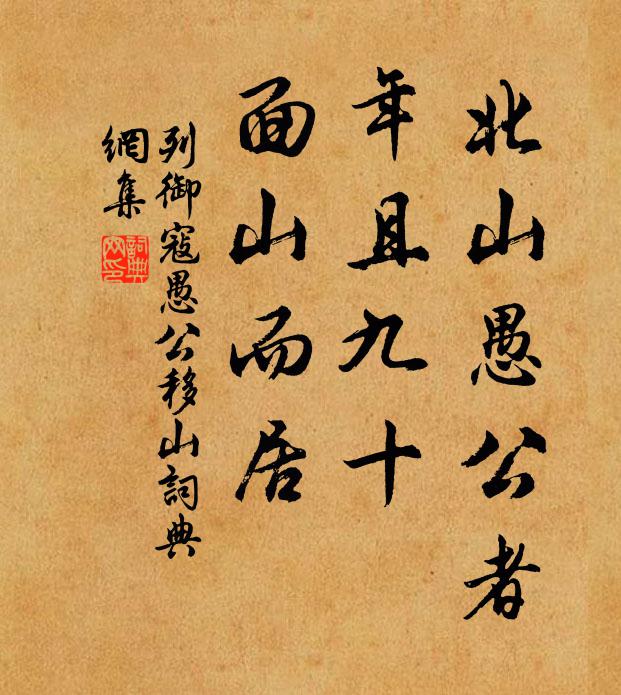 北山愚公者
年且九十
面山而居
列御寇愚公移山詞典
網集
詞典
网印